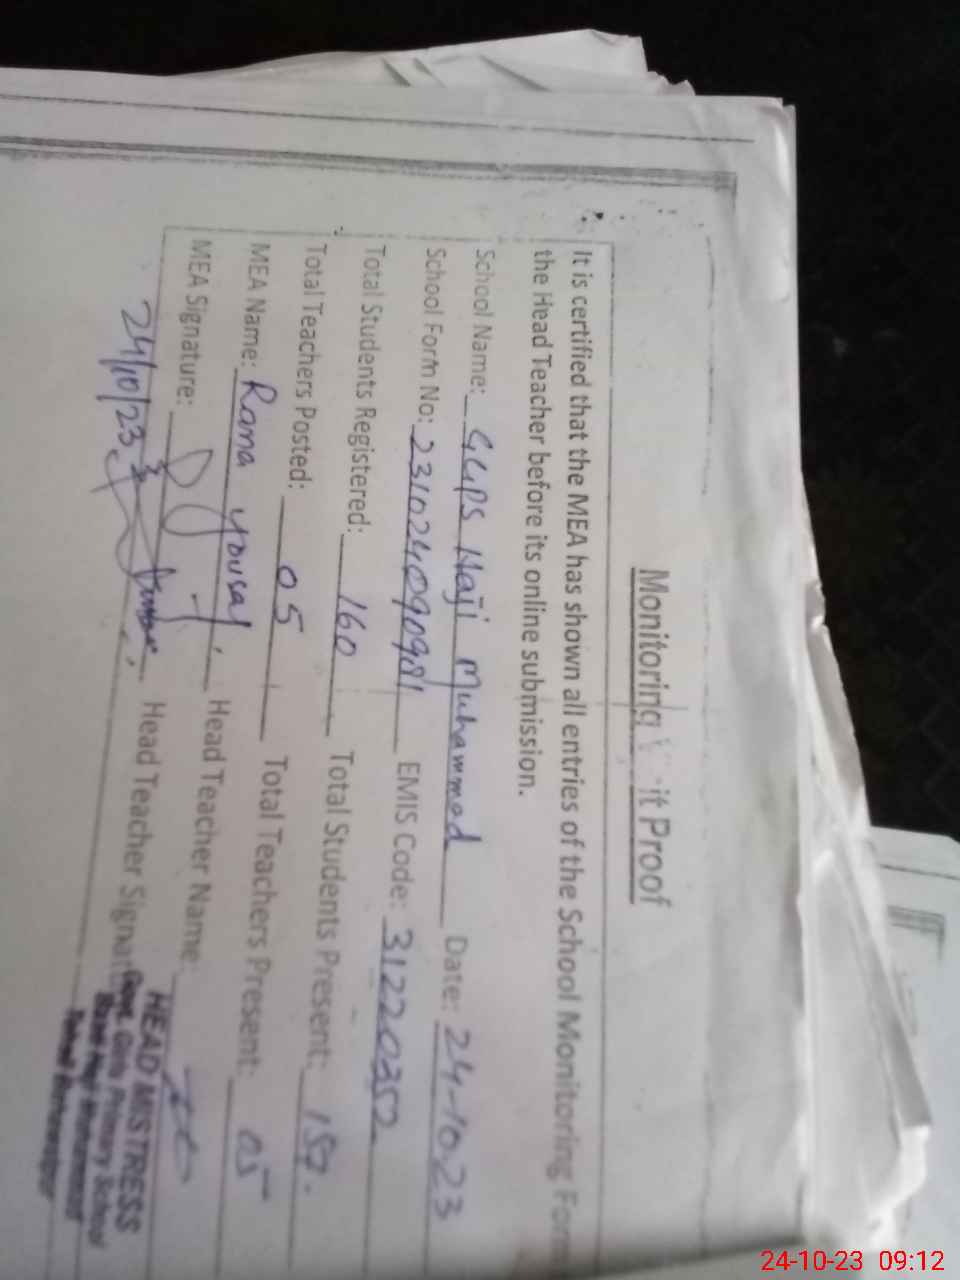 Monitoring it Proof
It is certified that the MEA has shown all entries of the School Monitoring Form
the Head Teacher before its online submission.
School Name: GGPS Haji Muhammad Date: 24-10-23
School Form No: 23102409098 EMIS Code: 31220352
Total Students Registered: 160 Total Students Present: 157.
Total Teachers Posted: 05 Total Teachers Present: 05
MEA Name: Rana yousaf, Head Teacher Name:
MEA Signature: Head Teacher Signat
24/10/23
HEAD MISTRESS
Govt. Girls Primary School
Muhammad
24-10-23 09:12